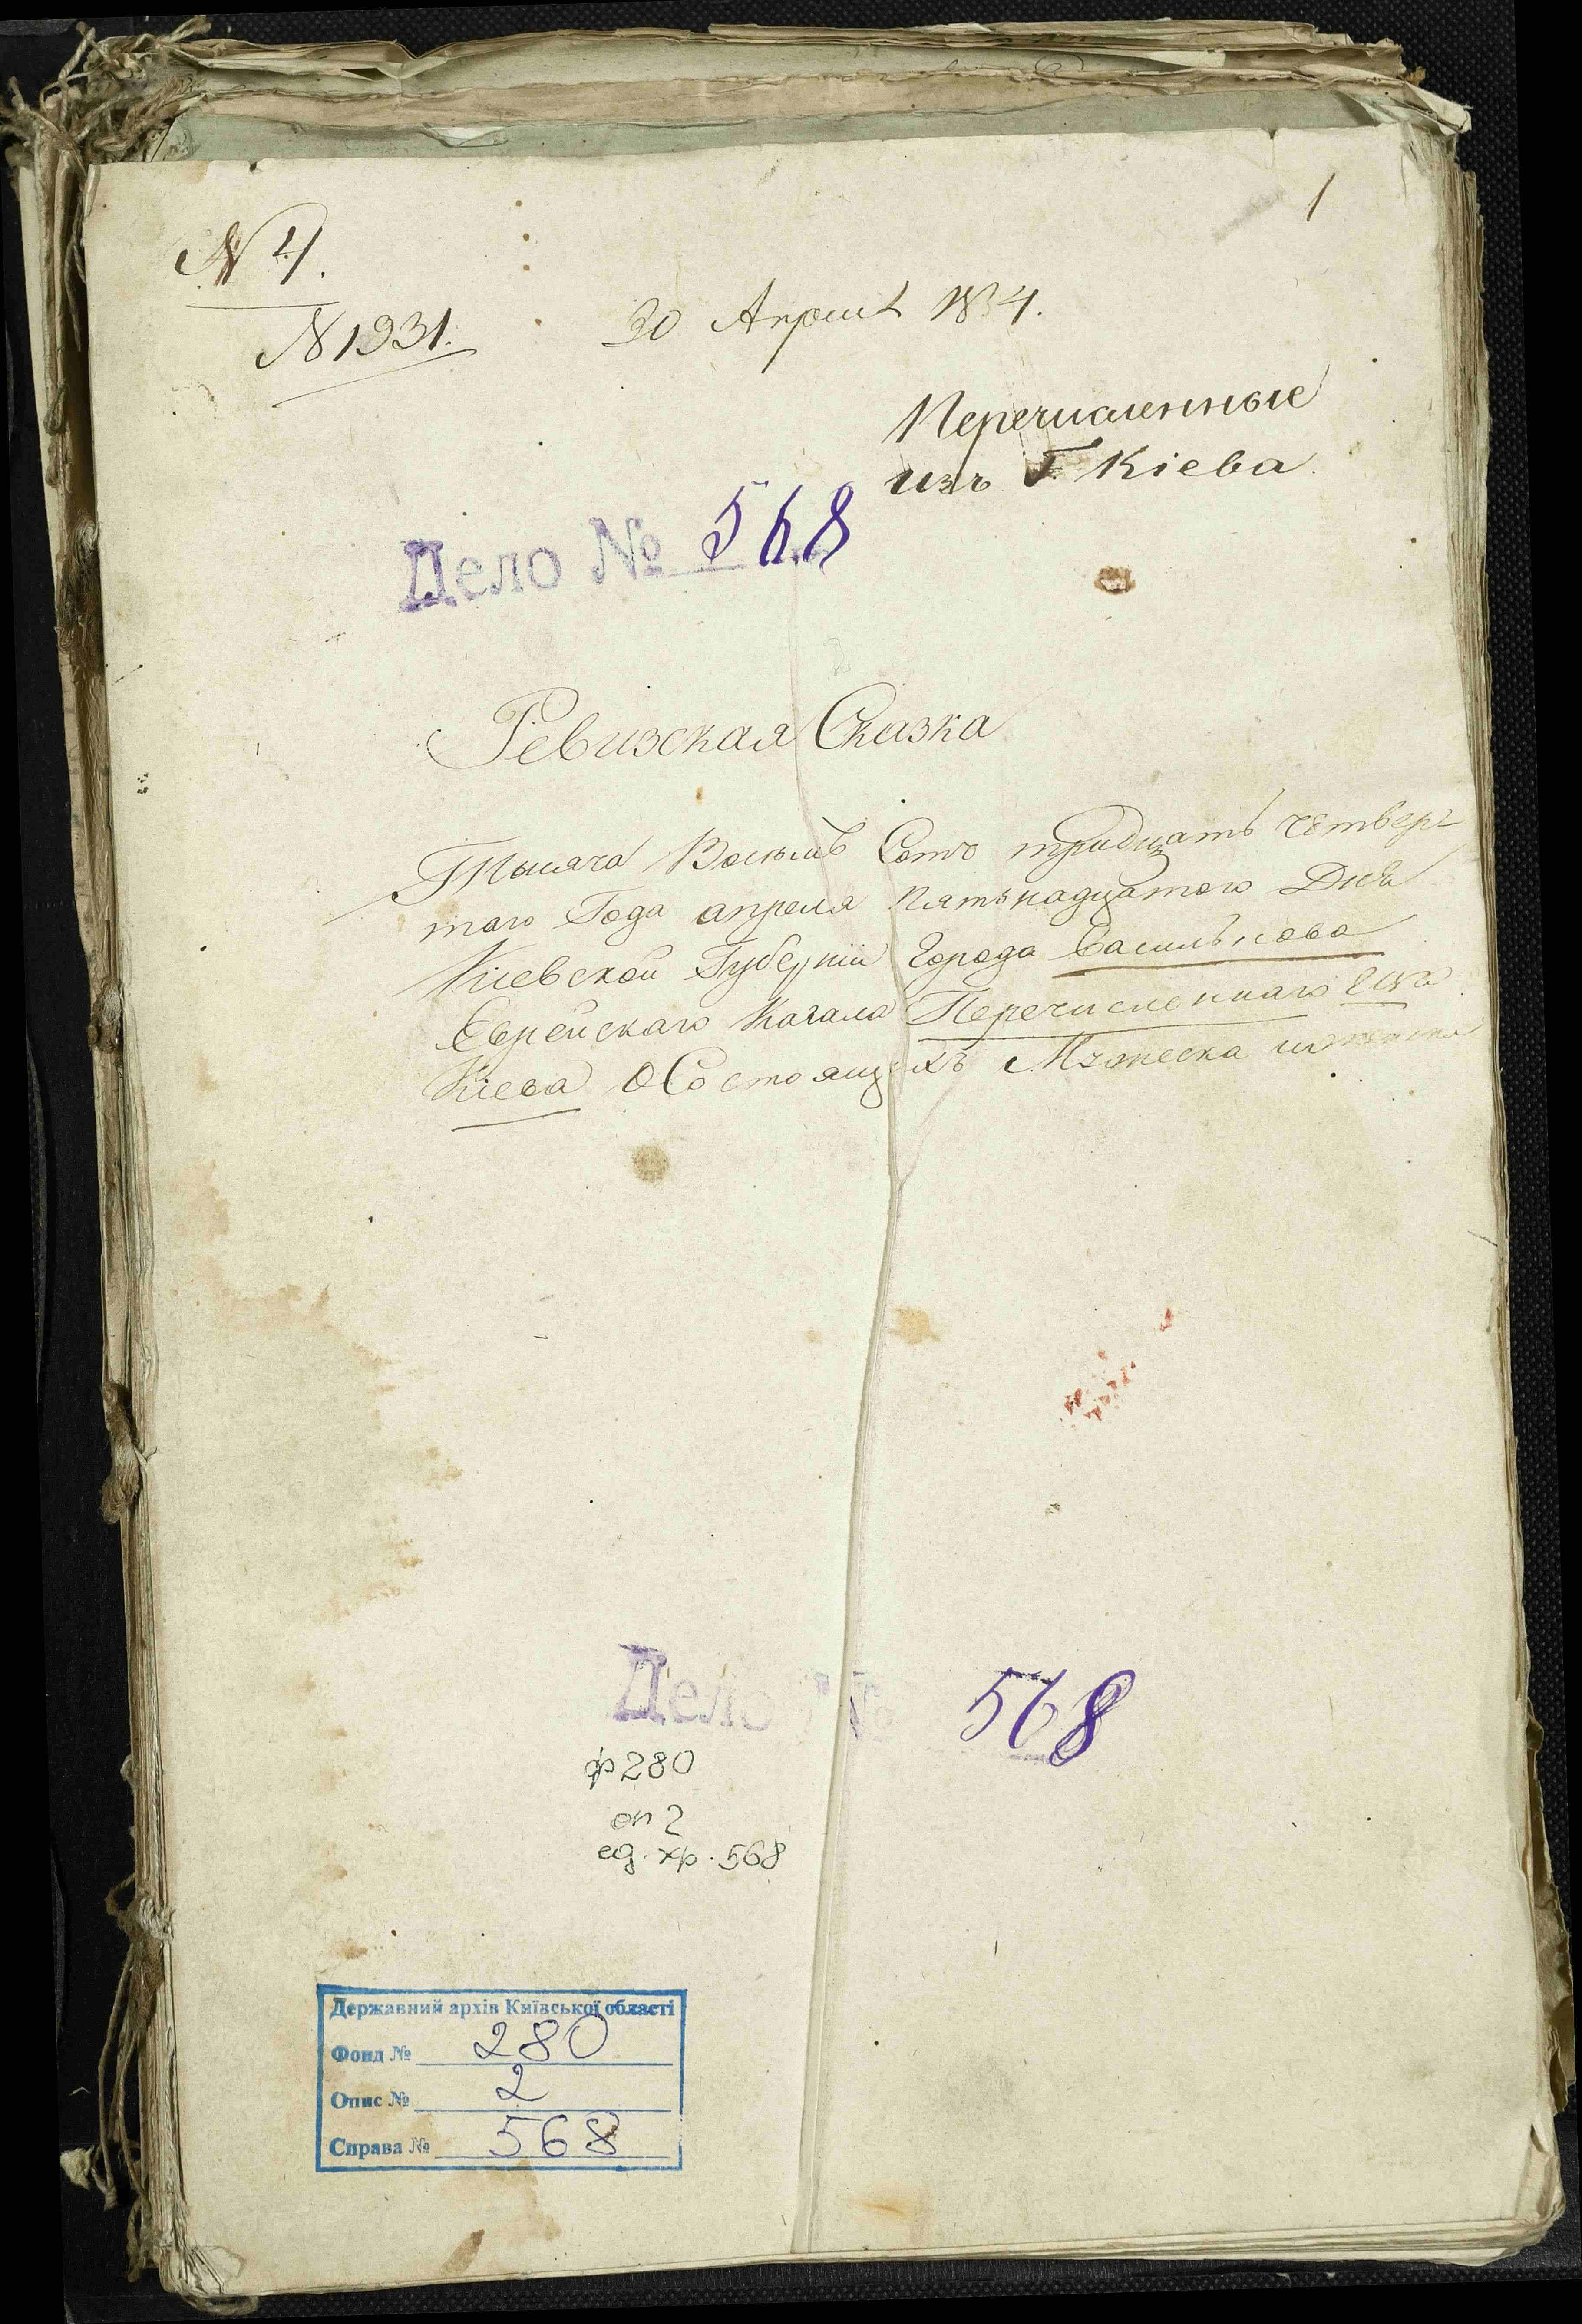 1
N 4.
N 1931.
30 Апреля 1834.
Перечисленные
изъ Г. Кіева
Дело № 568
Ревизская Сказка
Тысяча Восемь Сотъ тридцать четвер
таго Года апреля пятьнадцатого Дня
Кіевской Губерніи Города Василькова
Еврейскаго Кагала Перечисленнаго
Кіева О Состоящихъ Мужеска
Дело № 568
ф 280
оп 2
ед. хр. 568
Державний архів Київської області
Фонд № 280
Опис № 2
Справа № 568